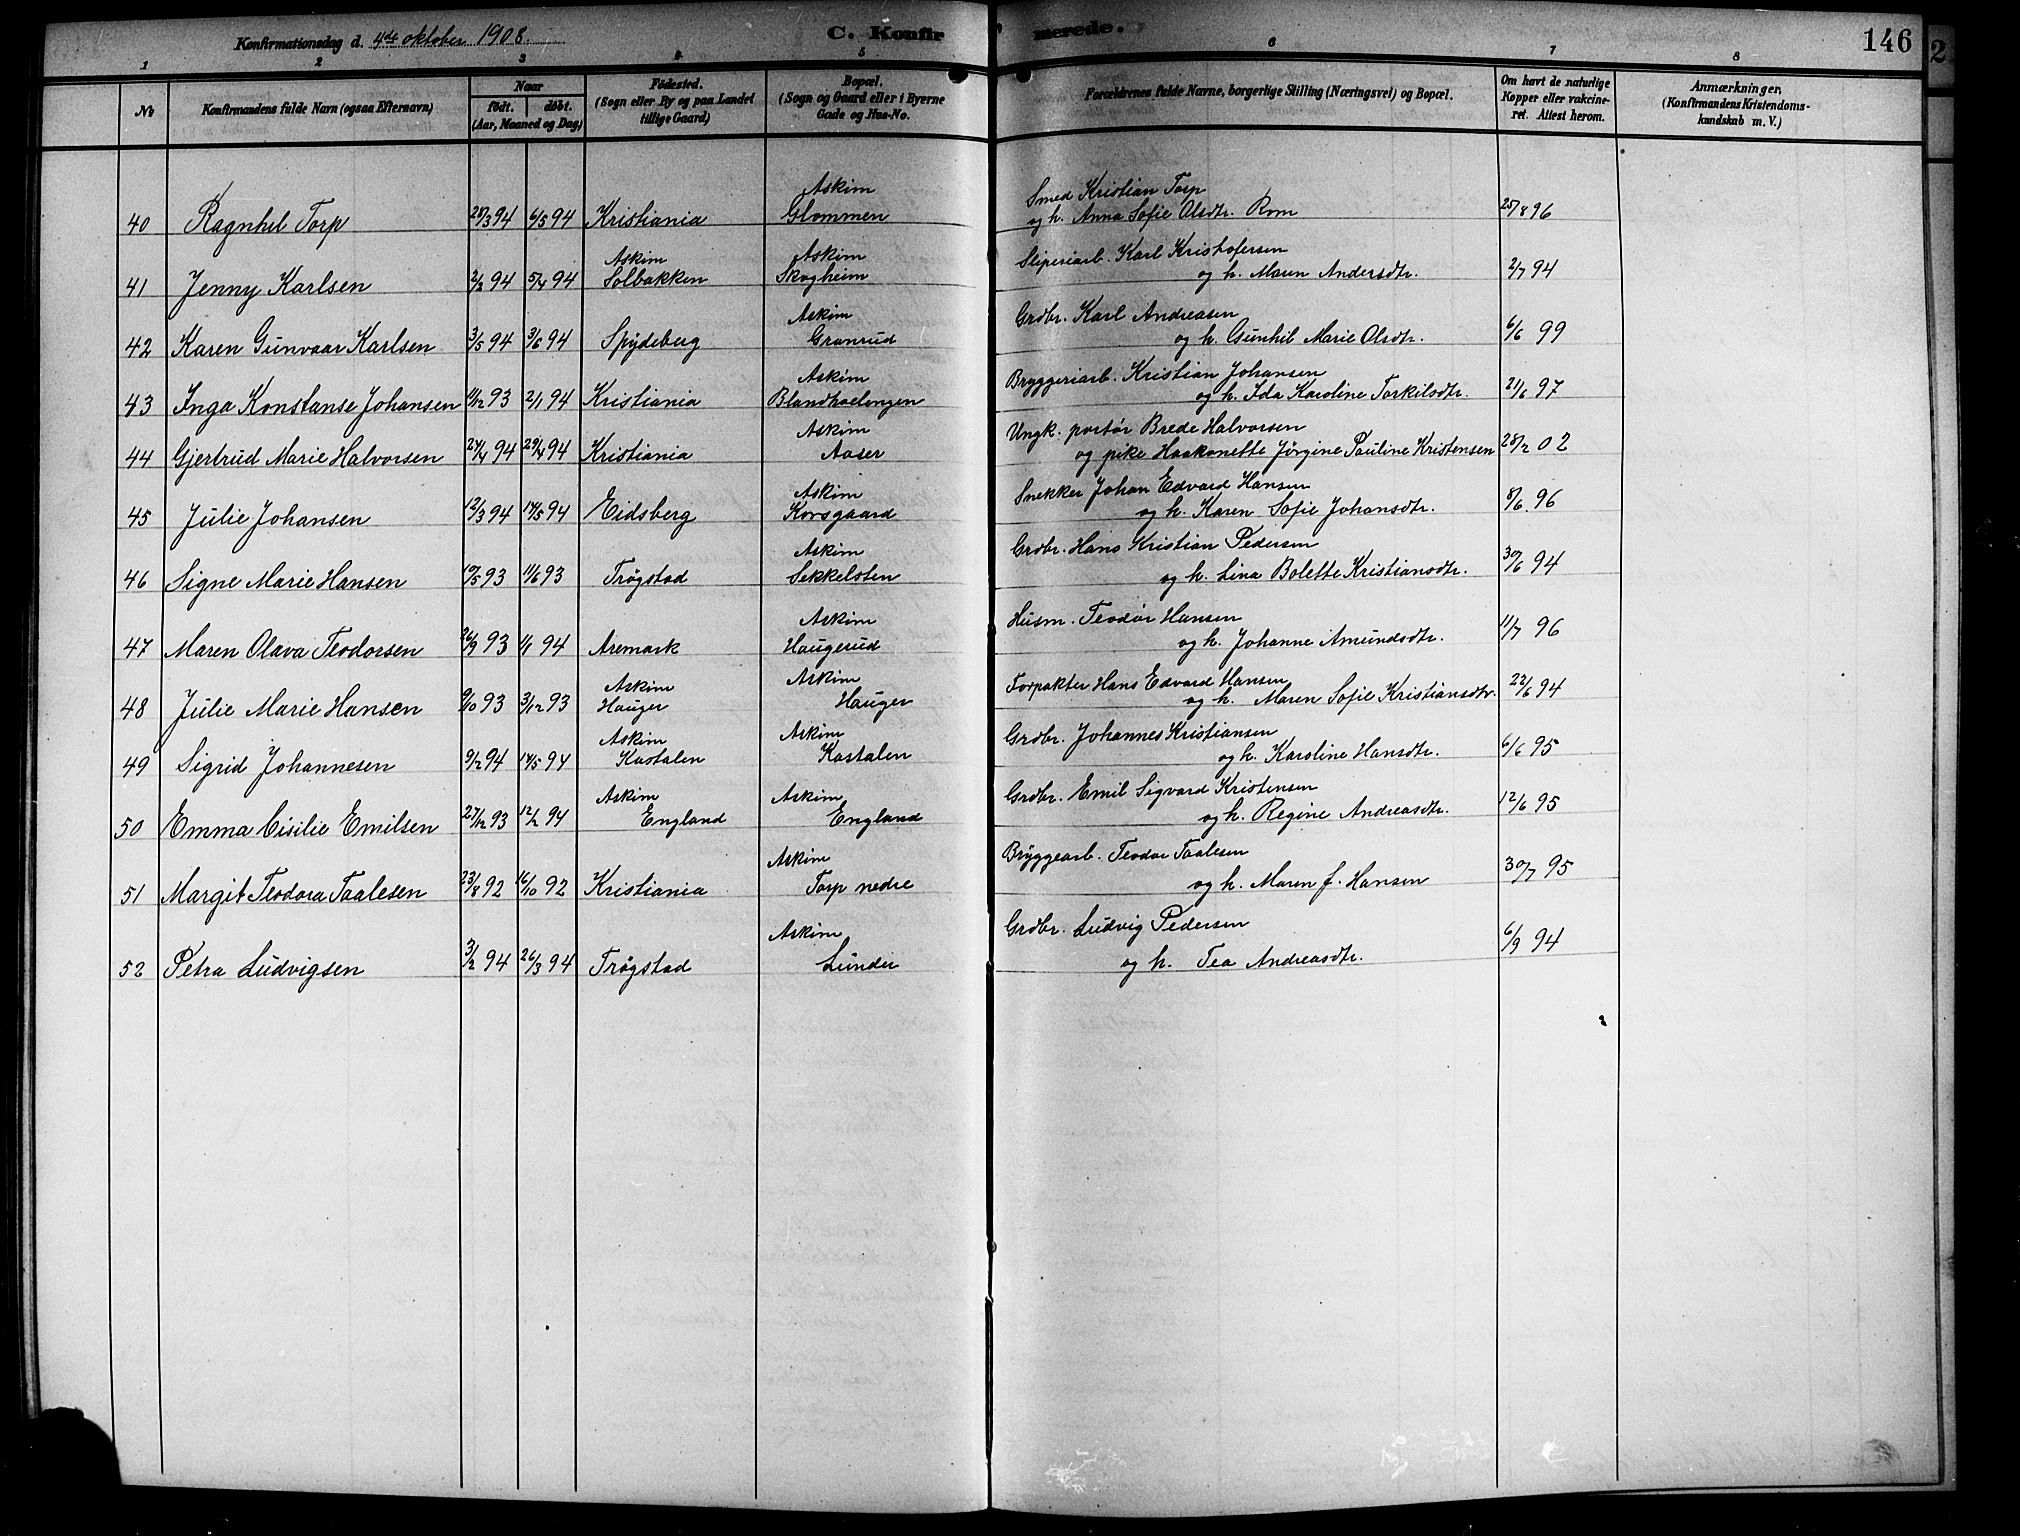 Konfirmationsdag d. 4de oktober 1908. C. Konfirmerede. 146
1 2 3 4 5 6 7 8
No Konfirmandens fulde Navn (ogsaa Efternavn) Naar født. døbt. (Aar, Maaned og Dag) Fødested. (Sogn eller By og paa Landet tillige Gaard) Bopæl. (Sogn og Gaard eller i Byerne Gade og Hus-No. Forældrenes fulde Navne, borgerlige Stilling (Næringsvei) og Bopæl. Om havt de naturlige Kopper eller vakcineret. Attest herom. Anmærkninger, (Konfirmandens Kristendomskundskab m. V.)
Askim Smed Kristian Torp
40 Ragnhil Torp 28/3 94 6/5 94 Kristiania Glommen og h. Anna Sofie Olsdtr. Rom 25/8 96
Askim Askim Sliperiarb. Karl Kristofersen
41 Jenny Karlsen 2/2 94 5/4 94 Solbakken Skogheim og h. Maren Andersdtr. 2/7 94
Askim Grdbr. Karl Andreasen
42 Karen Gunvaar Karlsen 3/5 94 3/6 94 Spydeberg Granrud og h. Gunhil Marie Olsdtr. 6/6 99
Askim Bryggeriarb. Kristian Johansen
43 Inga Konstanse Johansen 93 2/1 94 Kristiania og h. Ida Karoline Torkilsdtr. 21/6 97
Askim Ungk. portør Brede Halvorsen
44 Gjertrud Marie Halvorsen 94 29/4 94 Kristiania Aaser og pike Haakonette Jörgine Pauline Kristensen 28/2 02
Askim Snekker Johan Edvard Hansen
45 Julie Johansen 12/3 94 14/5 94 Eidsberg Korsgaard og h. Karen Sofie Johansdtr. 8/6 96
Askim Grdbr. Hans Kristian Pedersen
46 Signe Marie Hansen 93 11/6 93 Trøgstad Sekkelsten og h. Lina Bolette Kristiansdtr. 30/6 94
Askim Husm. Teodor Hansen
47 Maren Olava Teodorsen 26/9 93 1/1 94 Aremark Haugerud og h. Johanne Amundsdtr. 11/7 96
Askim Askim Forpakter Hans Edvard Hansen
48 Julie Marie Hansen 9/10 93 3/12 93 Hauger Hauger og h. Maren Sofie Kristiansdtr. 22/6 94
Askim Askim Grdbr. Johannes Kristiansen
49 Sigrid Johannesen 9/2 94 14/5 94 Kastalen Kastalen og h. Karoline Hansdtr. 6/6 95
Askim Askim Grdbr. Emil Sigvard Kristensen
50 Emma Cisilie Emilsen 27/12 93 12/2 94 England England og h. Regine Andreasdtr. 12/6 95
Askim Bryggearb. Teodor Taalesen
51 Margit Teodora Taalesen 23/8 92 16/10 92 Kristiania Torp nedre og h. Maren f. Hansen 30/7 95
Askim Grdbr. Ludvig Pedersen
52 Petra Ludvigsen 3/2 94 26/3 94 Trøgstad Lunder og h. Tea Andreasdtr. 6/9 94
2